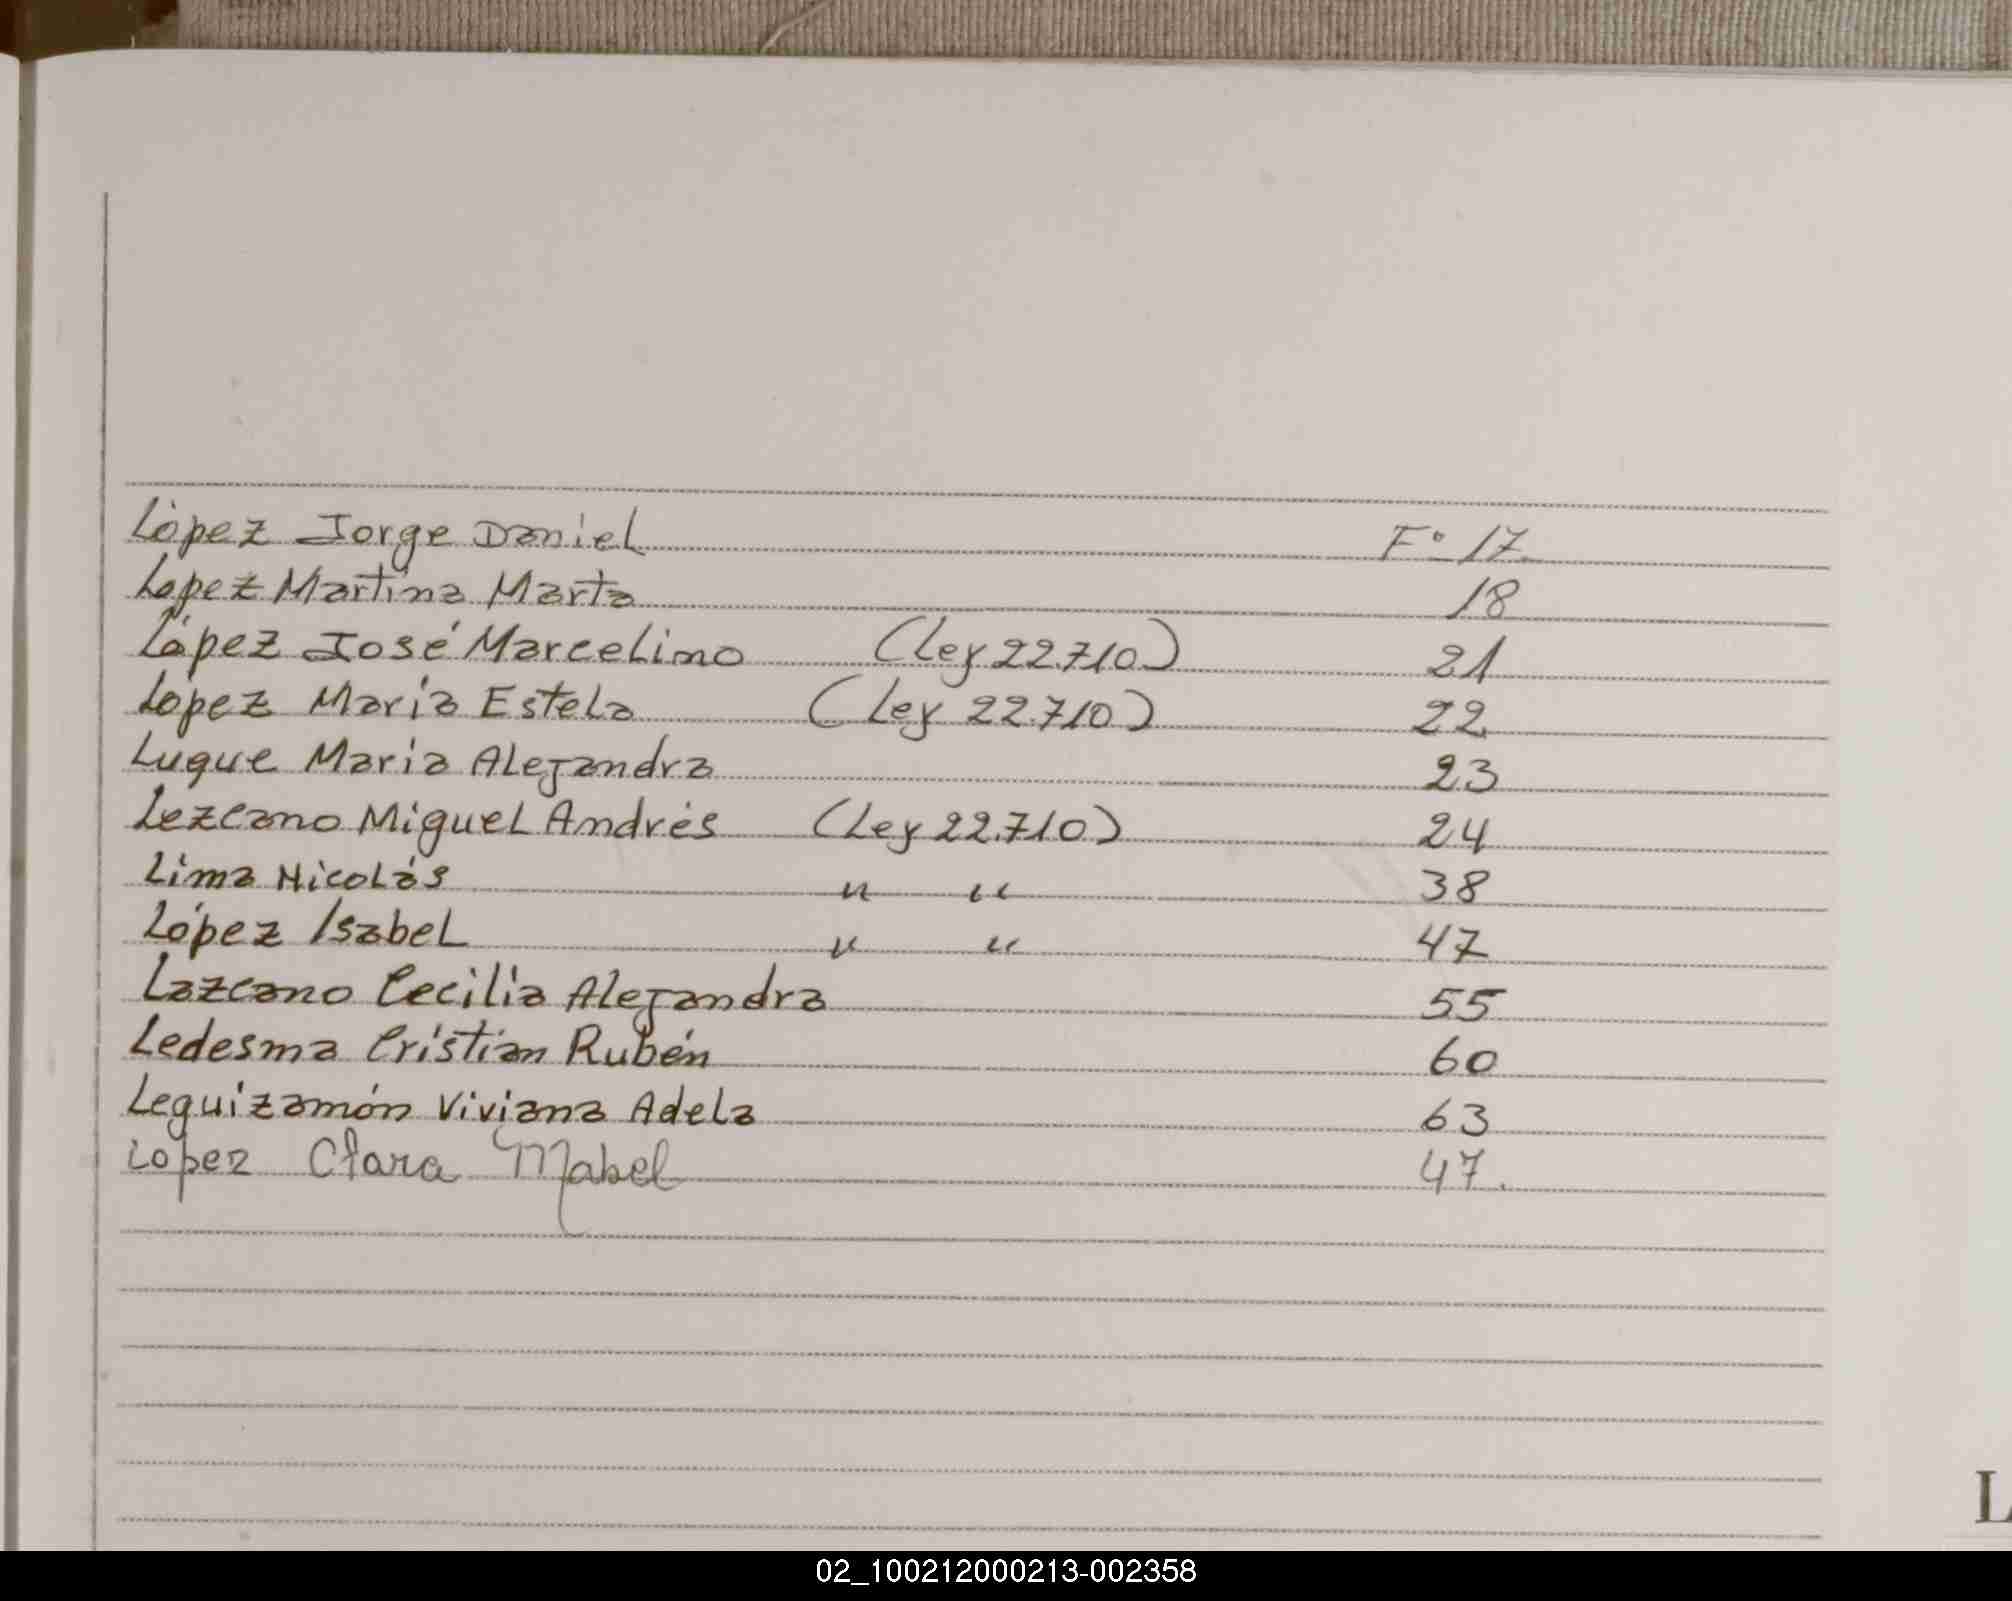 López Jorge Daniel F° 17
Lopez Martina Marta 18
López José Marcelino (Ley 22.710) 21
Lopez María Estela (Ley 22.710) 22
Luque María Alejandra 23
Lezcano Miguel Andrés (Ley 22.710) 24
Lima Nicolás " " 38
López Isabel " " 47
Lazcano Cecilia Alejandra 55
Ledesma Cristian Rubén 60
Leguizamón Viviana Adela 63
Lopez Clara Mabel 47.
L
02_100212000213-002358